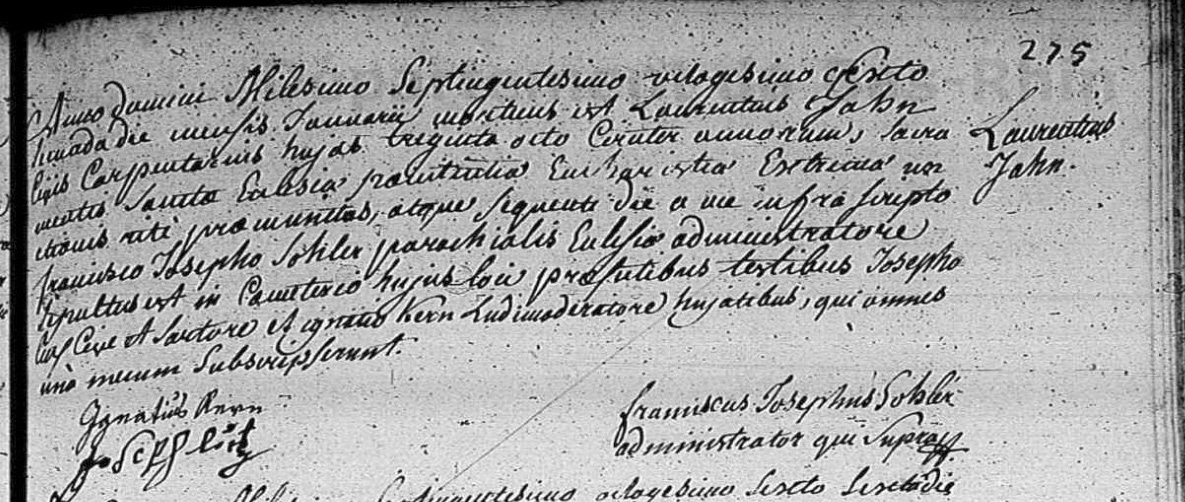 275
Anno Domini Milesimo Septingentesimo octogesimo Sexto
die mensis Januarii mortuus est Laurentius Jahn
Civis Carpentarius hujas triginta octo Circiter annorum, Sacra
mentis Sanctæ Eclesiæ pœnitentia Eucharistia Extrema un
ctionis rite præmunitus, atque sequenti die a me infra scripto
francisco Josepho Sohler parochialis Eclesiæ administratore
Sepultus est in Cœmeterio hujus loci præsentibus testibus Josepho
Cive et Sartore et ignatio Kern Ludimoderatore hujatibus, qui omnes
unà mecum Subscripserunt.
Laurentius
Jahn.
Ignatius Kern
Joseph
franciscus Josephus Sohler
administrator qui Supra
octogesimo sexto die